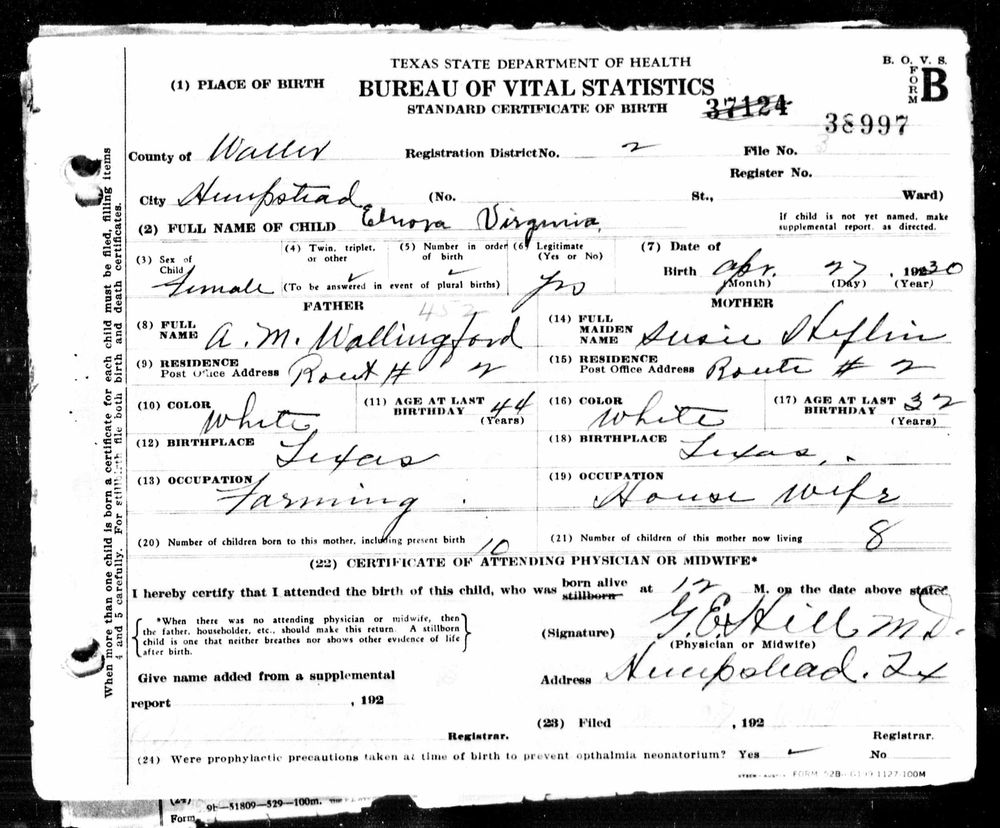 TEXAS STATE DEPARTMENT OF HEALTH
B. O. V. S.
(1) PLACE OF BIRTH
BUREAU OF VITAL STATISTICS
FORM B
STANDARD CERTIFICATE OF BIRTH
37124
38997
County of Waller Registration District No. 2 File No.
Register No.
City Hempstead (No. St., Ward)
(2) FULL NAME OF CHILD Elnora Virginia
If child is not yet named, make
supplemental report, as directed.
(3) Sex of Child Female
(4) Twin, triplet, or other ✓
(5) Number in order of birth ✓
(To be answered in event of plural births)
(6) Legitimate (Yes or No) Yes
(7) Date of Birth Apr. 27, 1930
(Month) (Day) (Year)
FATHER
452
MOTHER
(8) FULL NAME A. M. Wallingford
(14) FULL MAIDEN NAME Susie Heflin
(9) RESIDENCE Post Office Address Rout # 2
(15) RESIDENCE Post Office Address Route # 2
(10) COLOR White
(11) AGE AT LAST BIRTHDAY 44 (Years)
(16) COLOR White
(17) AGE AT LAST BIRTHDAY 32 (Years)
(12) BIRTHPLACE Texas
(18) BIRTHPLACE Texas
(13) OCCUPATION Farming
(19) OCCUPATION House Wife
(20) Number of children born to this mother, including present birth 10
(21) Number of children of this mother now living 8
(22) CERTIFICATE OF ATTENDING PHYSICIAN OR MIDWIFE*
I hereby certify that I attended the birth of this child, who was born alive stillborn at 12 M. on the date above stated.
*When there was no attending physician or midwife, then
the father, householder, etc., should make this return. A stillborn
child is one that neither breathes nor shows other evidence of life
after birth.
(Signature) G. E. Hill M.D.
(Physician or Midwife)
Give name added from a supplemental
Address Hempstead. Tx
report , 192
(23) Filed , 192
Registrar.
Registrar.
(24) Were prophylactic precautions taken at time of birth to prevent opthalmia neonatorium? Yes ✓ No
FORM 52B 1127-100M
When more than one child is born a certificate for each child must be filed, filling items
4 and 5 carefully. For stillbirth file both birth and death certificates.
(24)
9b-51809-529-100m.
Form